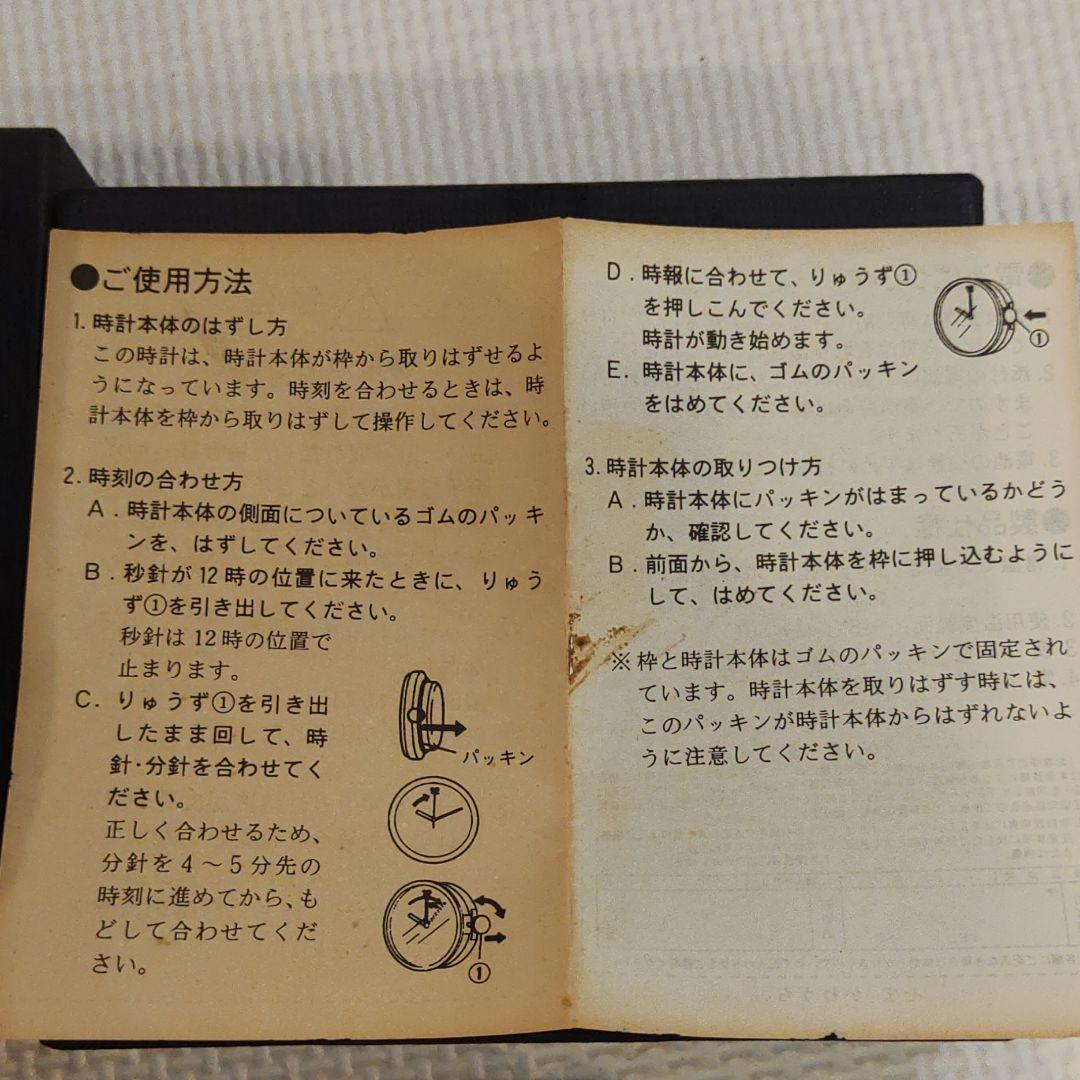 ●ご使用方法
1. 時計本体のはずし方
この時計は、時計本体が枠から取りはずせるよ
うになっています。時刻を合わせるときは、時
計本体を枠から取りはずして操作してください。
2. 時刻の合わせ方
A. 時計本体の側面についているゴムのパッキ
ンを、はずしてください。
B. 秒針が12時の位置に来たときに、りゅう
ず①を引き出してください。
秒針は12時の位置で
止まります。
C. りゅうず①を引き出
したまま回して、時
針・分針を合わせてく
ださい。
正しく合わせるため、
分針を4～5分先の
時刻に進めてから、も
どして合わせてくだ
さい。
パッキン
①
D. 時報に合わせて、りゅうず①
を押しこんでください。
時計が動き始めます。
①
E. 時計本体に、ゴムのパッキン
をはめてください。
3. 時計本体の取りつけ方
A. 時計本体にパッキンがはまっているかどう
か、確認してください。
B. 前面から、時計本体を枠に押し込むように
して、はめてください。
※枠と時計本体はゴムのパッキンで固定され
ています。時計本体を取りはずす時には、
このパッキンが時計本体からはずれないよ
うに注意してください。